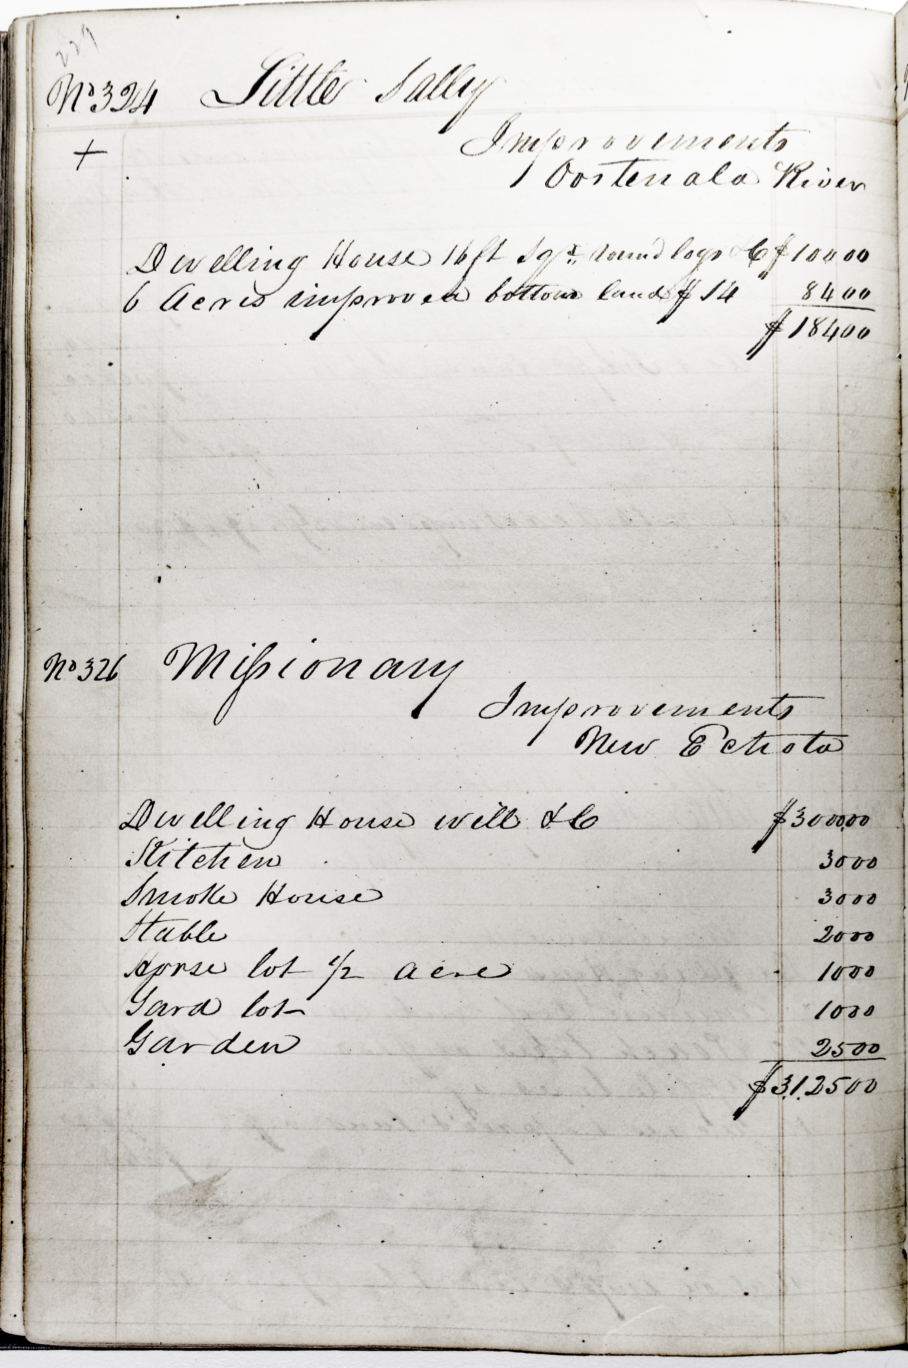 229
No 324 Little Sally
+
Improvements
Oostenala River
Dwelling House 16ft Sqr round logs &C $100 00
6 Acres improved bottom land $14 " 84 00
$184 00
No 326 Missionary
Improvements
New Echota
Dwelling House well &C $3000.00
Kitchen 30 00
Smoke House 30 00
Stable 20 00
Horse lot 1/2 acre 10 00
Yard lot 10 00
Garden 25 00
$3.1.25 00